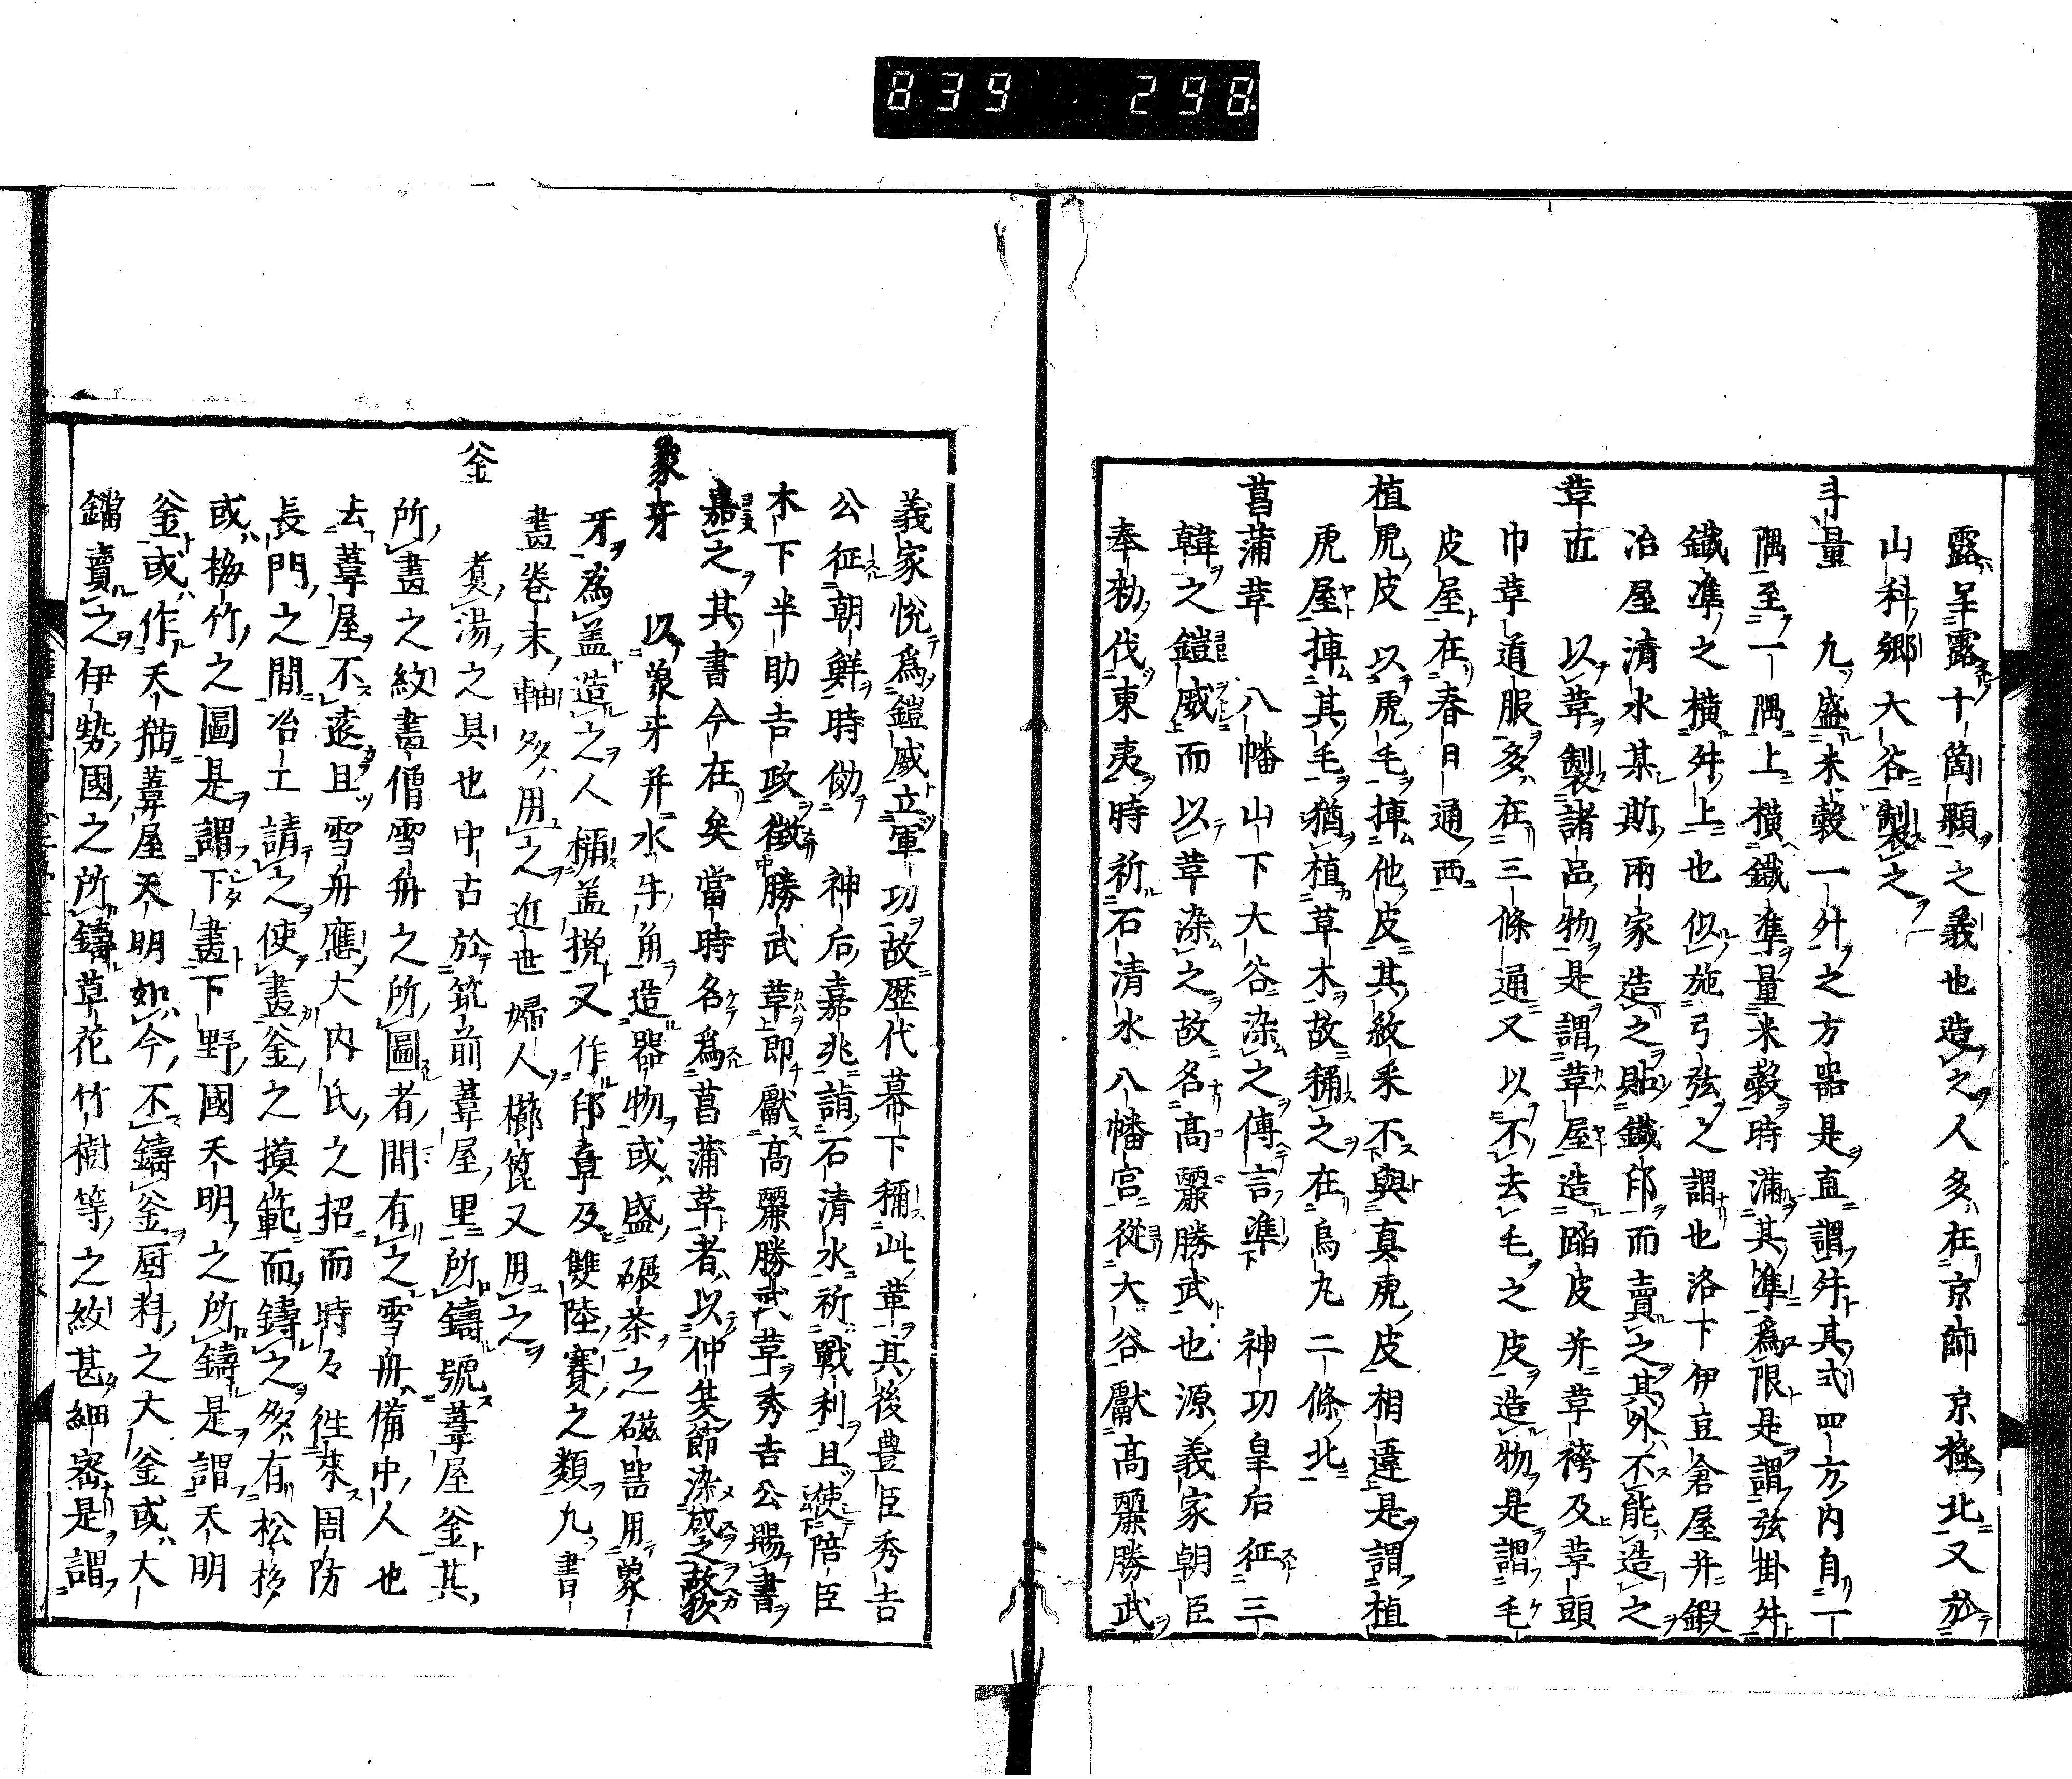 839 298
露呈露十箇顆之義也造之人多在京師京極北又於
山科郷大谷製之
斗量 九盛米穀一舛之方器是直謂舛其式四方内自一
隅至一隅上横鐵準量米穀時滿其準爲限是謂弦掛舛
鐵準之横舛上也似施弓弦之謂也洛下伊豆倉屋并鍛
冶屋清水某斯兩家造之貼鐵印而賣之其外不能造之
韋匠 以韋製諸品物是謂韋屋造踏皮并韋袴及韋頭
巾韋道服多在三條通又以不去毛之皮造物是謂毛
皮屋在春日通西
植虎皮 以虎毛挿他皮其紋釆不與真虎皮相違是謂植
虎屋挿其毛猶植草木故稱之在烏丸二條北
菖蒲韋 八幡山下大谷染之傳言準 神功皇后征三
韓之鎧威而以韋染之故名高麗勝武也源義家朝臣
奉勅伐東夷時祈石清水八幡宮從大谷獻高麗勝武
義家悅爲鎧威立軍功故歴代幕下稱此韋其後豊臣秀吉
公征朝鮮時倣 神后嘉兆請石清水祈戰利且使陪臣
木下半助吉政徵勝武韋即獻高麗勝武韋秀吉公賜書
嘉之其書今在矣當時名爲菖蒲韋者以仲夏節染成之故歟
象牙 以象牙并水牛角造器物或盛碾茶之磁器用象
牙爲盖造之人稱盖挽又作印章及雙陸賽之類九書
畫卷末軸多用之近世婦人櫛篦又用之
釜 煑湯之具也中古於筑前葦屋里所鑄號葦屋釜其
所畫之紋畫僧雪舟之所圖者間有之雪舟備中人也
去葦屋不遠且雪舟應大内氏之招而時々徃來周防
長門之間冶工請之使畫釜之摸範而鑄之多有松杉
或梅竹之圖是謂下畫下野國天明之所鑄是謂天明
釜或作天猫葦屋天明如今不鑄釜厨料之大釜或大
鐺賣之伊勢國之所鑄草花竹樹等之紋甚細密是謂